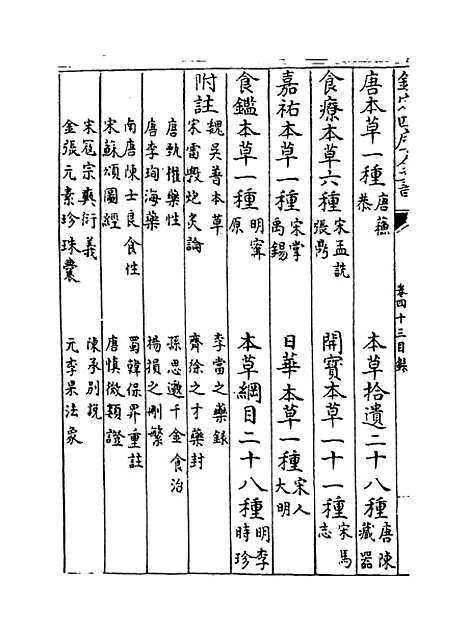 卷四十三目錄
唐本草一種唐蘇恭 本草拾遺二十八種唐陳藏器
食療本草六種宋孟詵張鼎 開寶本草一十一種宋馬志
嘉祐本草一種宋掌禹錫 日華本草一種宋人大明
食鑑本草一種明寗原 本草綱目二十八種明李時珍
附註
魏吳普本草 李當之藥錄
宋雷斅炮炙論 齊徐之才藥封
唐甄權藥性 孫思邈千金食治
唐李珣海藥 楊損之刪繁
南唐陳士良食性 蜀韓保昇重註
宋蘇頌圖經 唐慎微類證
宋寇宗奭衍義 陳承別說
金張元素珍珠囊 元李杲法象